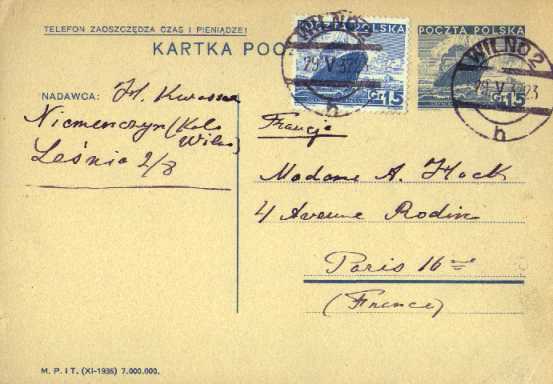 TELEFON ZAOSZCZĘDZA CZAS I PIENIĄDZE!
KARTKA POC
POLSKA
GR 15
POCZTA POLSKA
GR 15
WILNO 2
29 V 37
h
WILNO 2
29 V 23
h
NADAWCA: H. Kwasna
Niemenczyn (Koło
Wilna)
Leśnia 2/8
Francja
Madame A. Hock
4 Avenue Rodin
Paris 16me
(France)
M. P. i T. (XI-1936) 7.000.000.